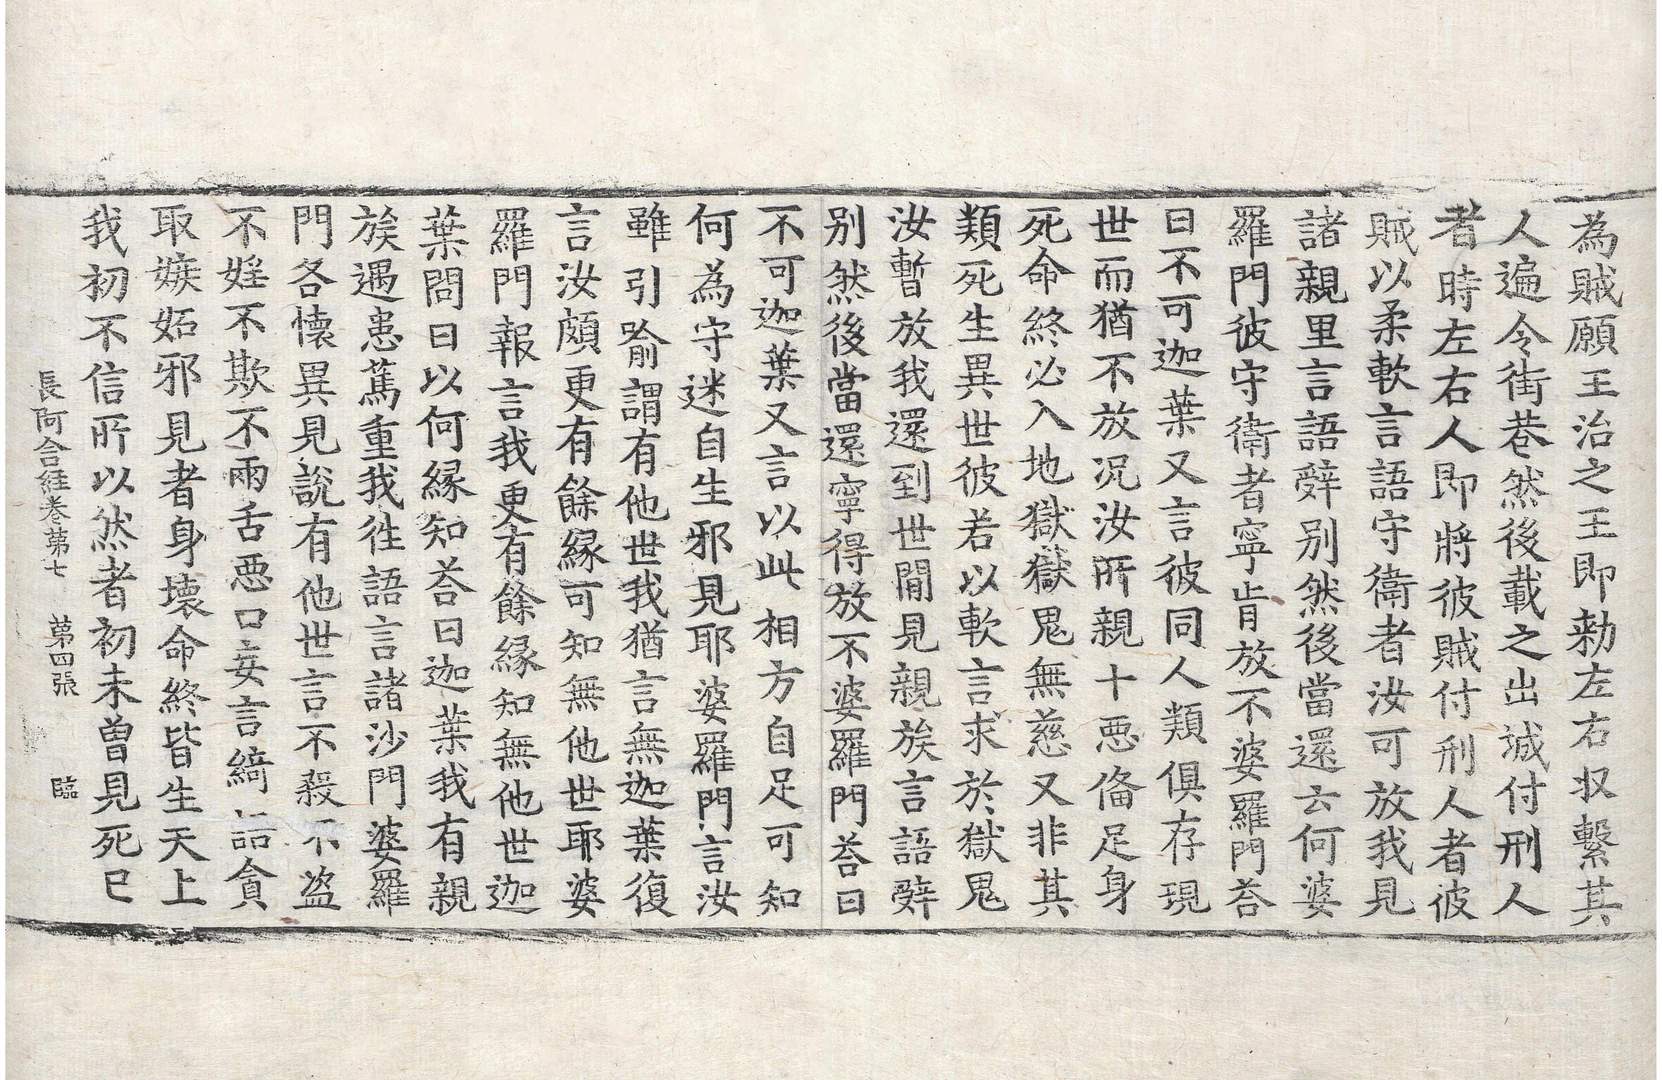 為賊願王治之王即勑左右収繫其
人遍令街巷然後載之出城付刑人
者時左右人即將彼賊付刑人者彼
賊以柔軟言語守衛者汝可放我見
諸親里言語辝別然後當還云何婆
羅門彼守衛者寧肯放不婆羅門荅
曰不可迦葉又言彼同人類俱存現
世而猶不放况汝所親十惡俻足身
死命終必入地獄獄鬼無慈又非其
類死生異世彼若以軟言求於獄鬼
汝暫放我還到世間見親族言語辝
別然後當還寧得放不婆羅門荅曰
不可迦葉又言以此相方自足可知
何為守迷自生邪見耶婆羅門言汝
雖引喻謂有他世我猶言無迦葉復
言汝頗更有餘縁可知無他世耶婆
羅門報言我更有餘縁知無他世迦
葉問曰以何縁知荅曰迦葉我有親
族遇患篤重我徃語言諸沙門婆羅
門各懷異見說有他世言不殺不盗
不婬不欺不兩舌惡口妄言綺語貪
取嫉妬邪見者身壞命終皆生天上
我初不信所以然者初未曾見死已
長阿含經卷第七 第四張 臨